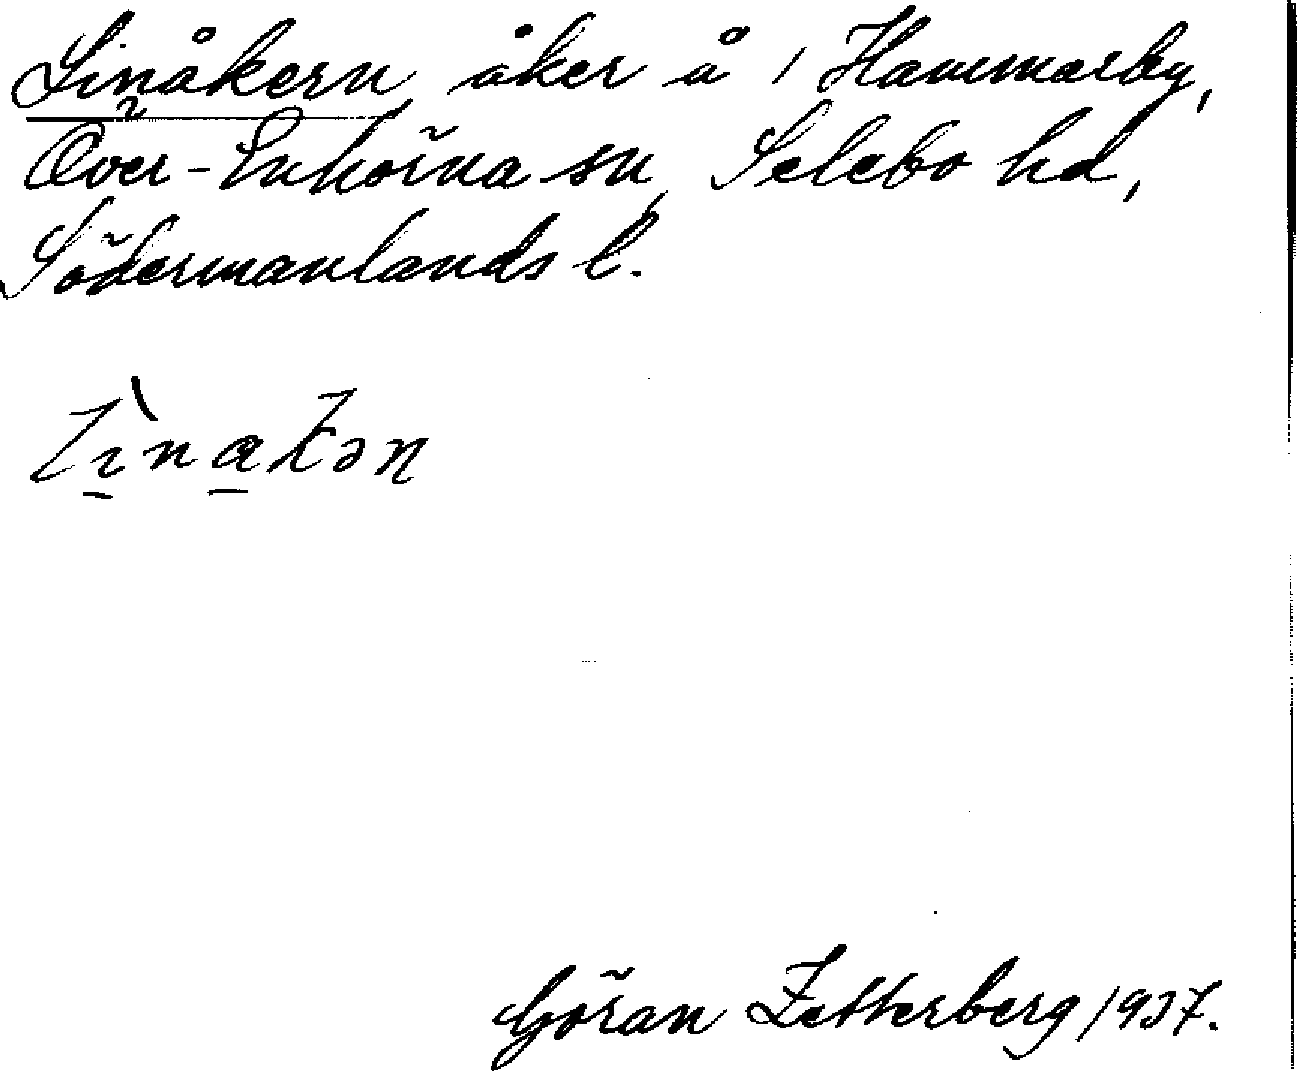 Linåkern åker å 1 Hammarby,
Över-Enhörna sn, Selebo hd,
Södermanlands l.
Göran Zetterberg 1937.